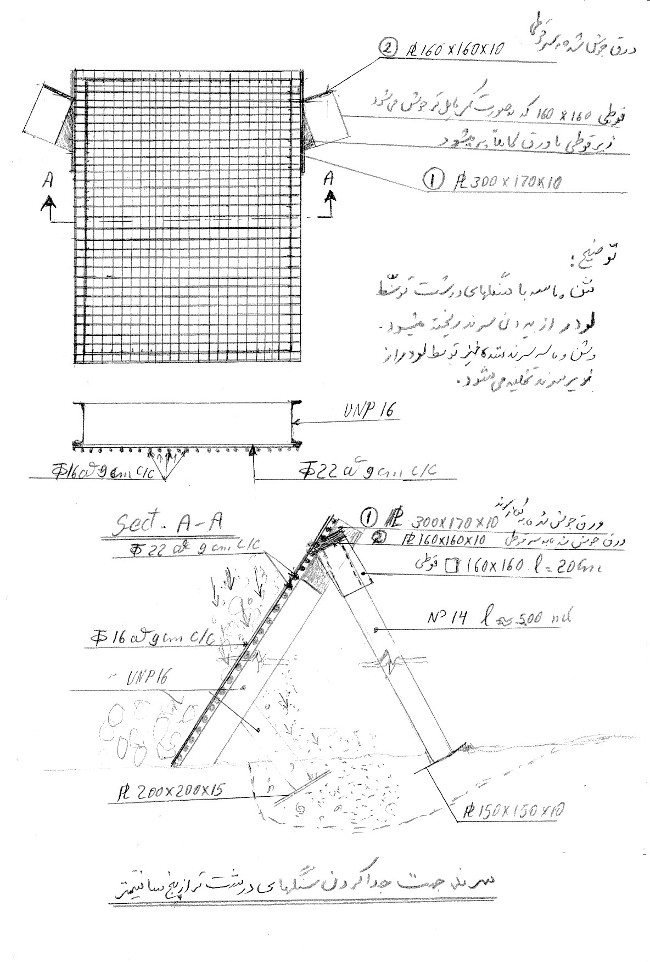 ورق جوش شده به سر قوطی
② PL 160×160×10
قوطی 160×160 که به صورت کامل تر جوش می‌شود
زیر قوطی با ورق کاملاً پر میشود
① PL 300×170×10
A A
توضیح:
شن و ماسه با سنگهای درشت توسط
لودر از بر روی سرند ریخته میشود.
و شن و ماسه سرند شده نیز توسط لودر از
زیر سرند تخلیه می‌شود.
UNP 16
Φ16 @ 9 cm c/c
Φ22 @ 9 cm c/c
Sect. A-A
Φ22 @ 9 cm c/c
① PL 300×170×10 ورق جوش شده به
② PL 160×160×10 ورق جوش شده به سر قوطی
قوطی □ 160×160 l = 20 cm
Nº 14 l ≈ 5.00
Φ16 @ 9 cm c/c
UNP 16
PL 200×200×15
PL 150×150×10
سرند جهت جدا کردن سنگهای درشت تر از پنج سانتیمتر